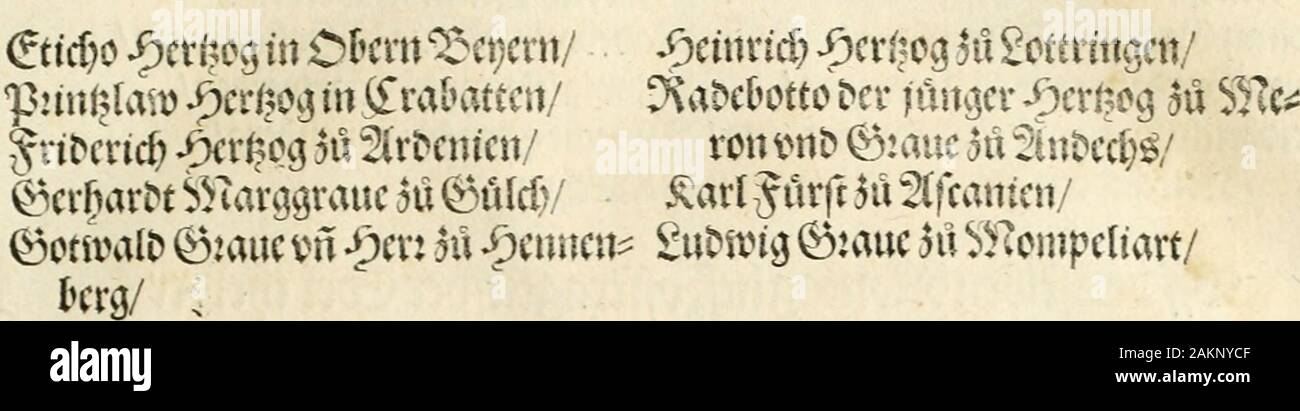 Eticho Hertzog in Obern Beyern/
Printzlaw Hertzog in Crabatten/
Friderich Hertzog zů Ardenien/
Gerhardt Marggraue zů Gülch/
Gotwald Graue vñ Herr zů Hennen⸗
berg/
Heinrich Hertzog zů Lottringen/
Radebotto der jünger Hertzog zů Me⸗
ron vnd Graue zů Andechs/
Karl Fürst zů Ascanien/
Ludwig Graue zů Mompeliart/
alamy
Image ID: 2AKNYCF
www.alamy.com